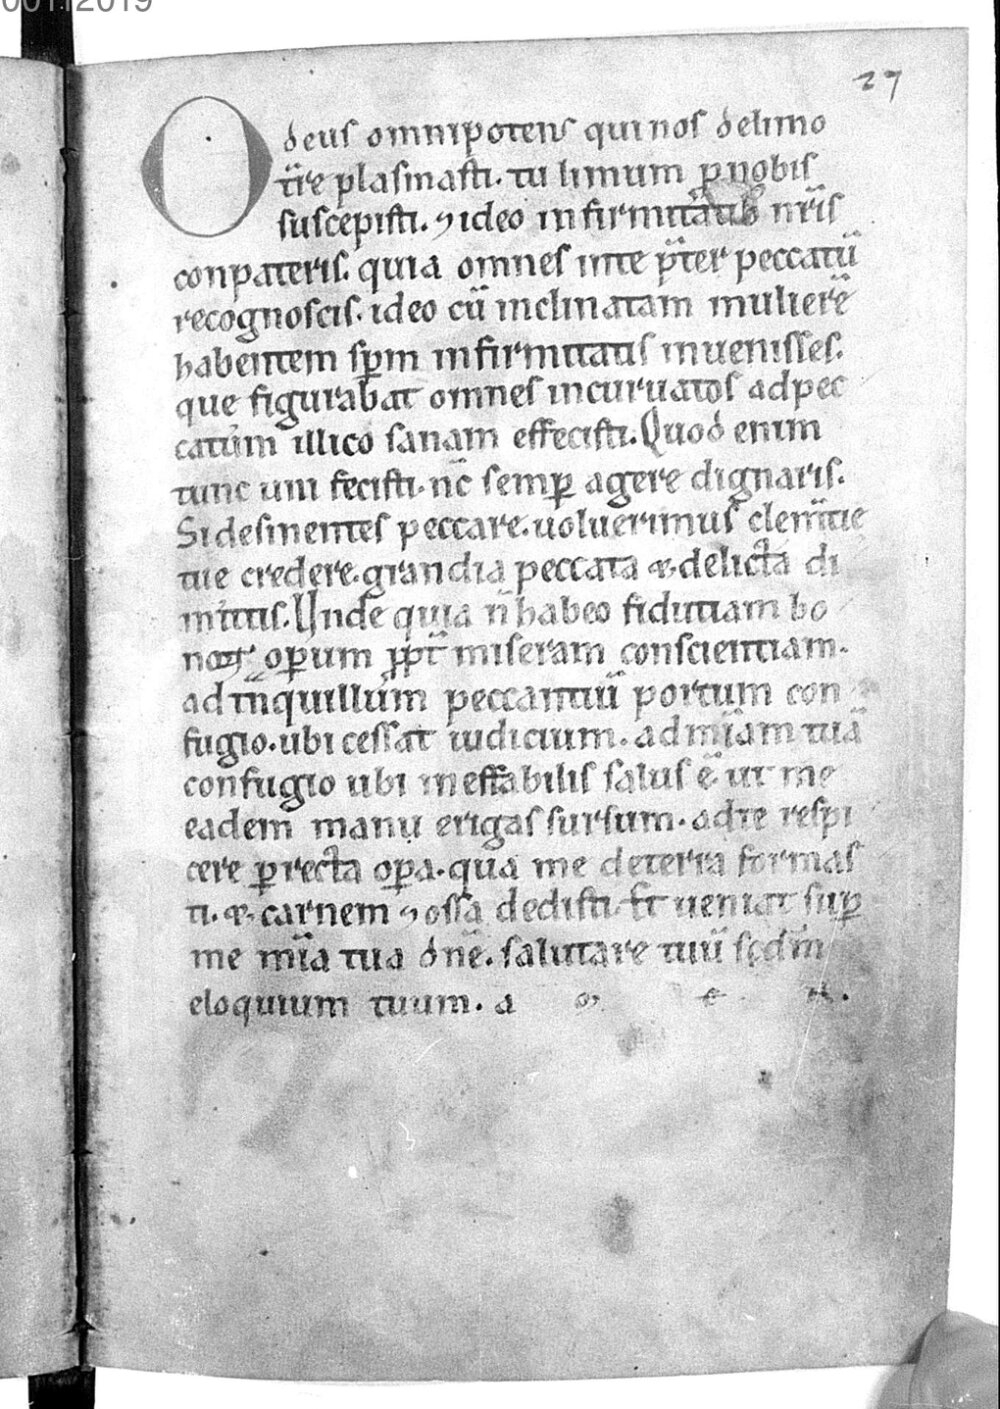 00112019
27
O deus omnipotens qui nos delimo
tr̄re plasmasti. tu limum ꝑ nobis
suscepisti. ⁊ ideo infirmitatib; nr̄is
conpateris. quia omnes inte p̄ter peccatū
recognoscis. ideo cū inclinatam mulierē
habentem sp̄m infirmitatis inuenisses.
que figurabat omnes incuruatos adpec
catum illico sanam effecisti. Quod enim
tunc uni fecisti. nc̄ semꝑ agere dignaris.
Si desinentes peccare. uoluerimus clem̄tie
tue credere. grandia peccata & delicta di
mittis. Unde quia n̄ habeo fidutiam bo
noꝝ oꝑum ꝓpt̄ miseram conscientiam.
ad tn̄quillum peccantiū portum con
fugio. ubi cessat iudicium. ad mīam tuā
confugio ubi ineffabilis salus ē. ut me
eadem manu erigas sursum. adte respi
cere ꝑ recta oꝑa. qua me deterra formas
ti. & carnem ⁊ ossa dedisti. Et ueniat suꝑ
me mīa tua dn̄e. salutare tuū scd̄m
eloquium tuum. a m e n.